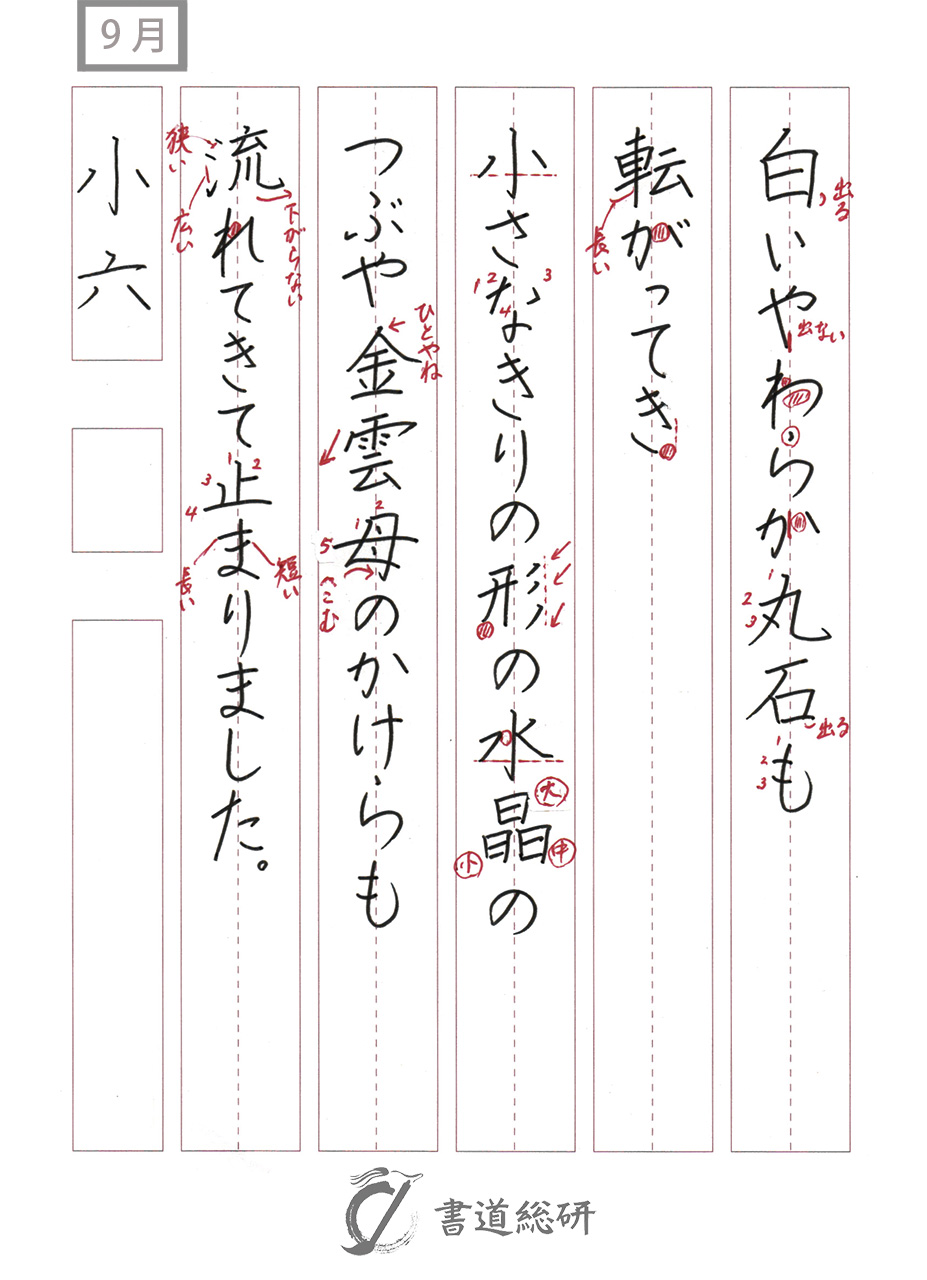 9月
白いやわらか丸石も
出る
出ない
1
2
3
出る
1
2
3
転がってき
長い
小さなきりの形の水晶の
1
2
3
4
大
小
中
つぶや金雲母のかけらも
ひとやね
1
2
5
へこむ
流れてきて止まりました。
狭い
広い
下がらない
1
2
3
4
長い
短い
小六
書道総研